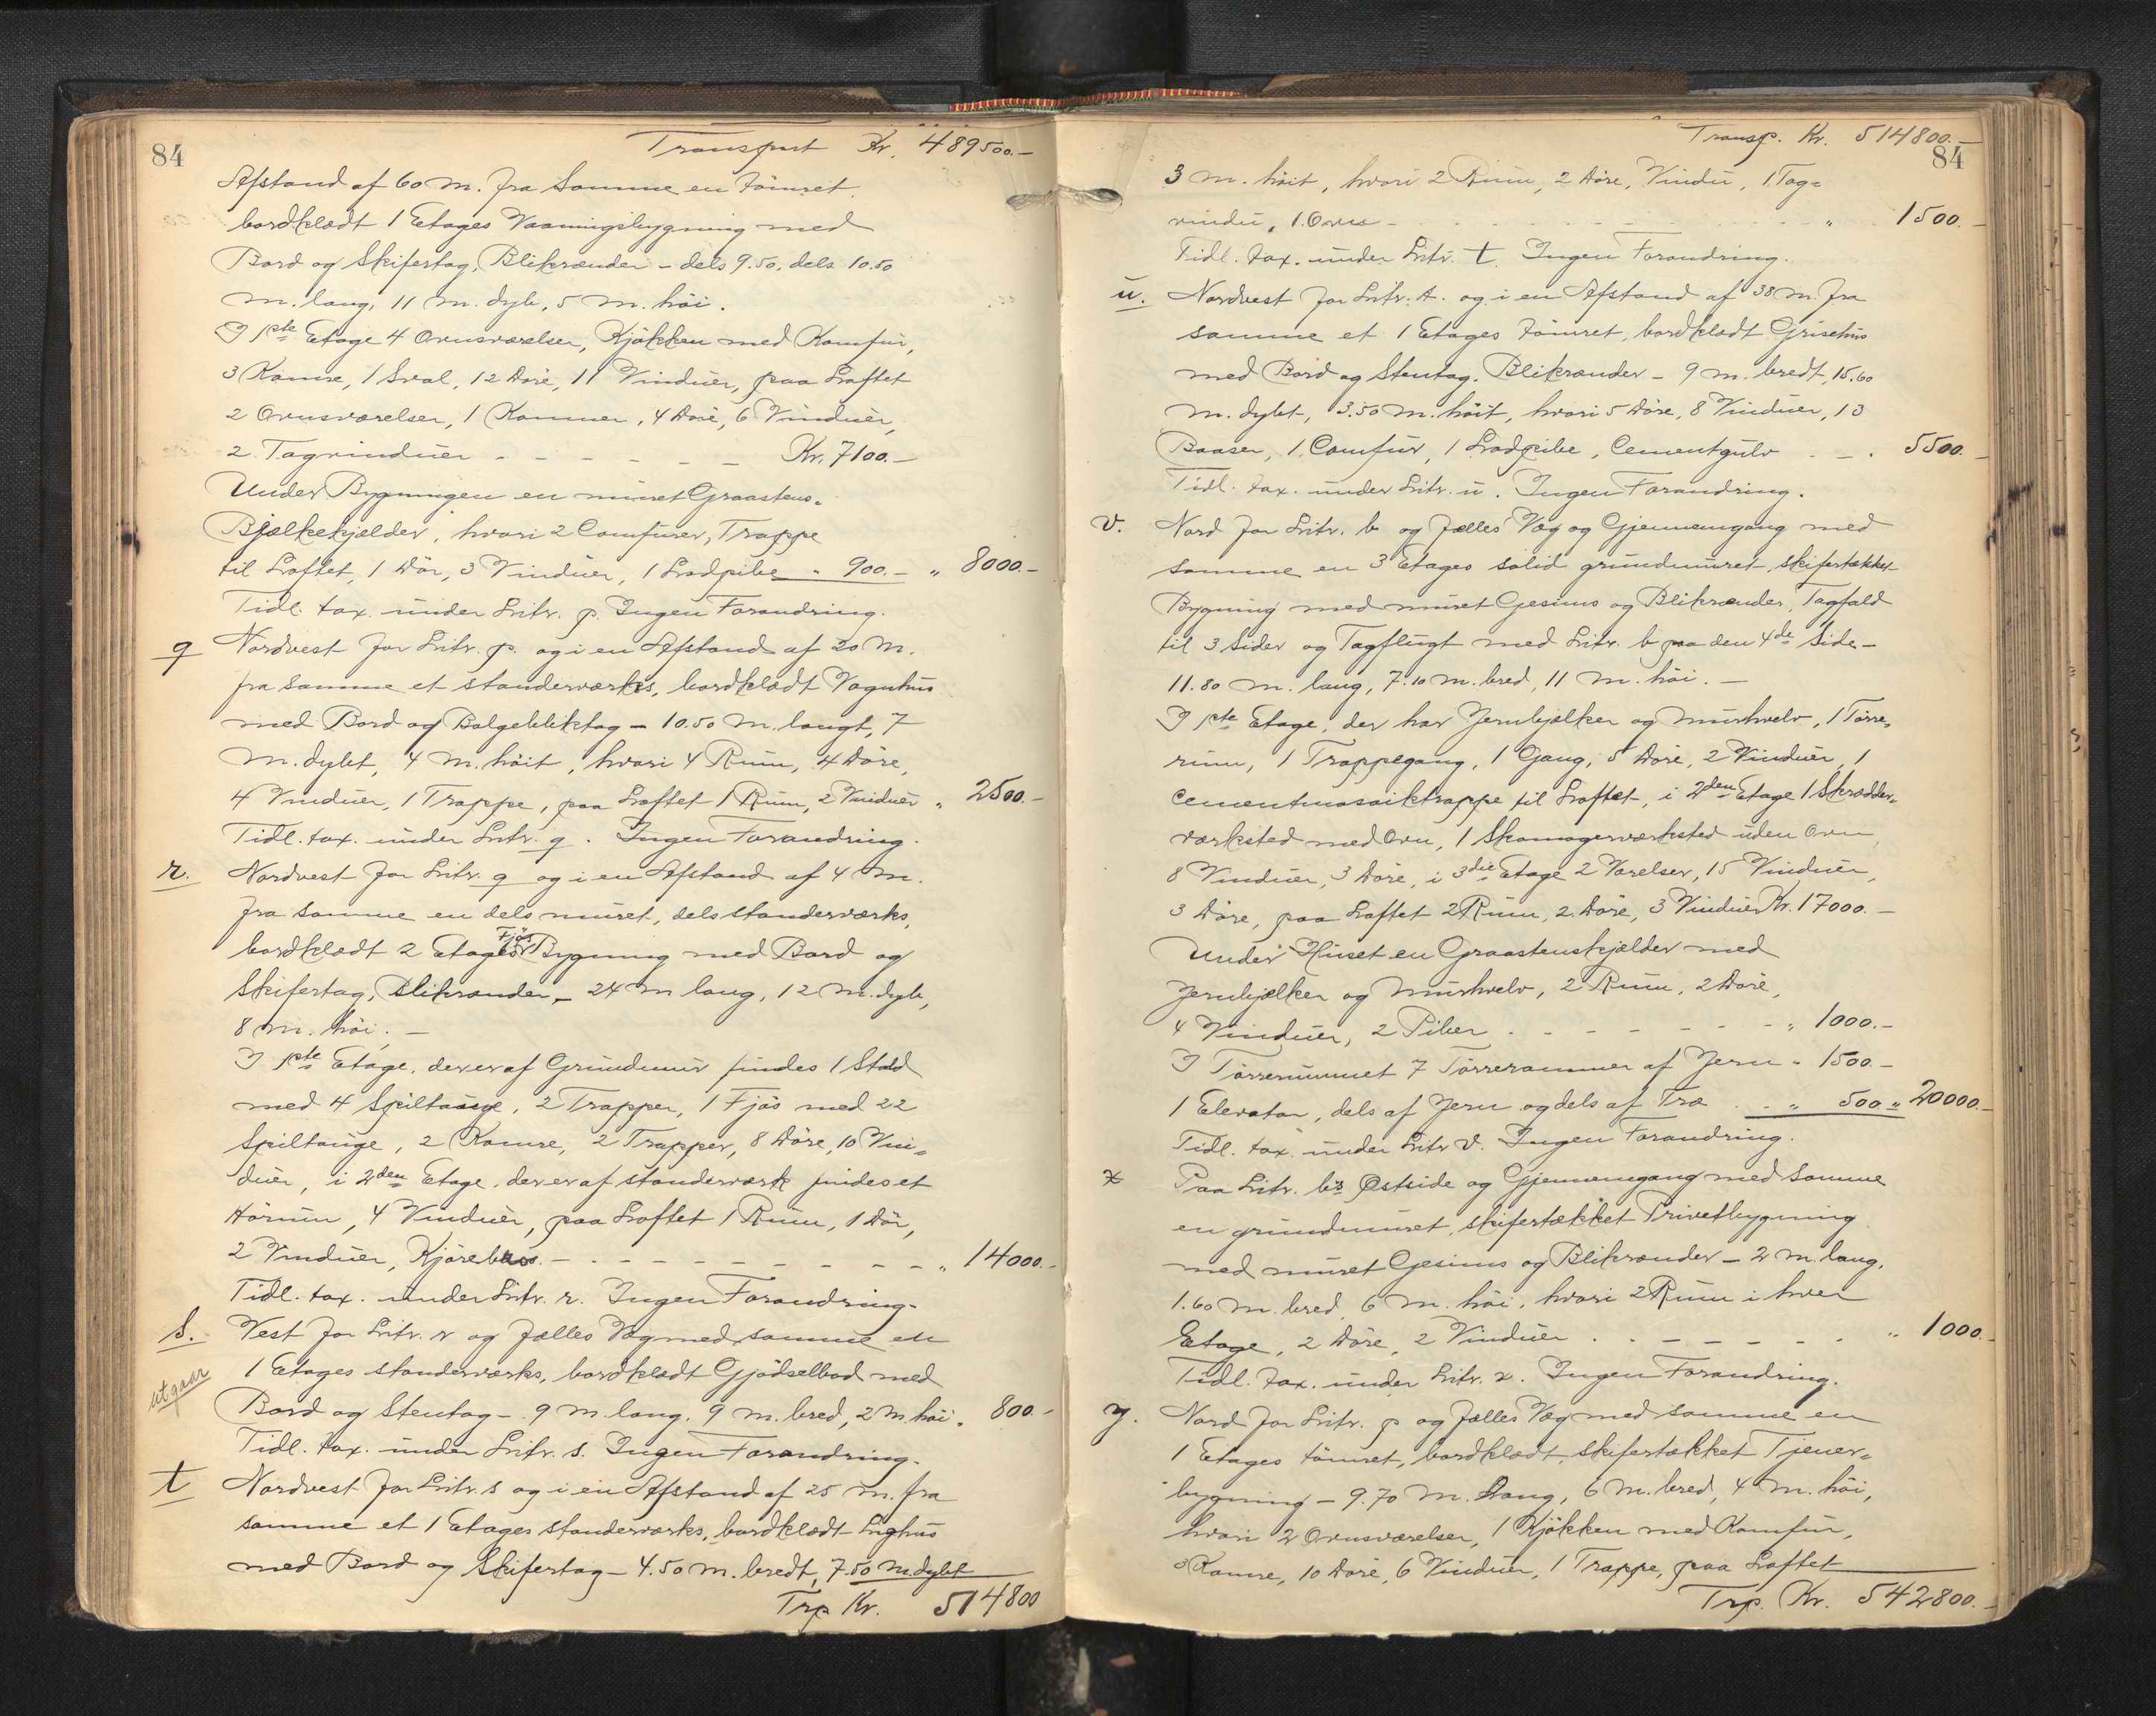 84
Transport Kr. 489500.-
Afstand af 60 m. fra Samme en tömret
bordklædt 1 Etages Vaaningsbygning med
Bord og Skifertag, Blikrænder - dels 9.50, dels 10.50
m. lang, 11 m. dyb, 5 m. höi.
I 1ste Etage 4 Ovnsværelser, Kjökken med Komfur,
3 Kamre, 1 Sval, 12 Döre, 11 Vinduer, paa Loftet
2 Ovnsværelser, 1 Kammer, 4 Döre, 6 Vinduer,
2 Tagvinduer - - - - - - Kr. 7100.-
Under Bygningen en muret Graastens-
Bjælkekjælder, hvori 2 Comfurer, Trappe
til Loftet, 1 Dör, 3 Vinduer, 1 Lodpibe " 900.- " 8000.-
Tidl. tax. under Litr. p. Ingen Forandring.
q Nordvest for Litr. p. og i en Afstand af 20 m.
fra samme et standerværks, bordklædt Vognhus
med Bord og Bølgebliktag - 10.50 m. langt, 7
m. dybt, 4 m. höit, hvori 4 Rum, 4 Döre,
4 Vinduer, 1 Trappe, paa Loftet 1 Rum, 2 Vinduer " 2500.-
Tidl. tax. under Litr. q. Ingen Forandring.
r. Nordvest for Litr. q og i en Afstand af 4 m.
fra samme en dels muret, dels standerværks,
bordklædt 2 Etages Fjös Bygning med Bord og
Skifertag, Blikrænder - 24 m lang, 12 m. dyb,
8 m. höi. -
I 1ste Etage, der er af Grundmur findes 1 Stald
med 4 Spiltauge, 2 Trapper, 1 Fjös med 22
Spiltauge, 2 Kamre, 2 Trapper, 8 Döre, 10 Vin-
duer, i 2den Etage, der er af standerværk findes et
Hörum, 4 Vinduer, paa Loftet 1 Rum, 1 Dör,
2 Vinduer, Kjörebro. - - - - - - - - - " 14000.-
Tidl. tax. under Litr. r. Ingen Forandring.
s. Vest for Litr. r og fælles Væg med samme en
utgaar 1 Etages standerværks, bordklædt Gjödselbod med
Bord og Stentag - 9 m. lang, 9 m. bred, 2 m. höi " 800.-
Tidl. tax. under Litr. s. Ingen Forandring.
t Nordvest for Litr. s og i en Afstand af 25 m. fra
samme et 1 Etages standerværks, bordklædt Lighus
med Bord og Skifertag - 4.50 m. bredt, 7.50 m. dybt
Trp Kr. 514800
Transp. Kr. 514800.-
84
3 m. höit, hvori 2 Rum, 2 Döre, Vindu, 1 Tag-
vindu, 1 Ovn - - - - - - " 1500.-
Tidl. tax. under Litr. t. Ingen Forandring.
u. Nordvest for Litr. t. og i en Afstand af 38 m. fra
samme et 1 Etages tömret, bordklædt Grisehus
med Bord og Stentag, Blikrænder - 9 m. bredt, 15.60
m. dybt, 3.50 m. höit, hvori 5 Döre, 8 Vinduer, 13
Baaser, 1 Comfur, 1 Lodpibe, Cementgulv . - . 5500.-
Tidl. tax. under Litr. u. Ingen Forandring.
v. Nord for Litr. b og fælles Væg og Gjennemgang med
samme en 3 Etages solid grundmuret, skifertækket
Bygning med muret Gesims og Blikrænder, Tagfald
til 3 Sider og Tagflugt med Litr. b paa den 4de Side -
11.80 m. lang, 7.10 m. bred, 11 m. höi. -
I 1ste Etage, der har Jernbjælker og Murhvelv, 1 Törre-
rum, 1 Trappegang, 1 Gang, 5 Döre, 2 Vinduer, 1
Cementmosaiktrappe til Loftet, i 2den Etage 1 Skrædder-
værksted med Ovn, 1 Skomagerværksted uden Ovn
8 Vinduer, 3 Döre, i 3die Etage 2 Værelser, 15 Vinduer,
3 Döre, paa Loftet 2 Rum, 2 Döre, 3 Vinduer Kr. 17000.-
Under Huset en Graastenskjælder med
Jernbjælker og Murhvelv, 2 Rum, 2 Döre,
4 Vinduer, 2 Piber . - - - - - - " 1000.-
I Törrerummet 7 Törrerammer af Jern " 1500.-
1 Elevator, dels af Jern og dels af Træ . . " 500 " 20000.-
Tidl. tax. under Litr v. Ingen Forandring.
x Paa Litr. b's Østside og Gjennemgang med samme
en grundmuret, skifertækket Privetbygning
med muret Gesims og Blikrænder - 2 m. lang,
1.60 m. bred, 6 m. höi, hvori 2 Rum i hver
Etage, 2 Döre, 2 Vinduer . . - - - - - . " 1000.-
Tidl. tax. under Litr. x. Ingen Forandring.
y. Nord for Litr. p og fælles Væg med samme en
1 Etages tömret, bordklædt, skifertækket Tjener-
bygning - 9.70 m. lang, 6 m. bred, 4 m. höi,
hvori 2 Ovnsværelser, 1 Kjökken med Komfur,
3 Kamre, 10 Döre, 6 Vinduer, 1 Trappe, paa Loftet
Trp. Kr. 542800.-